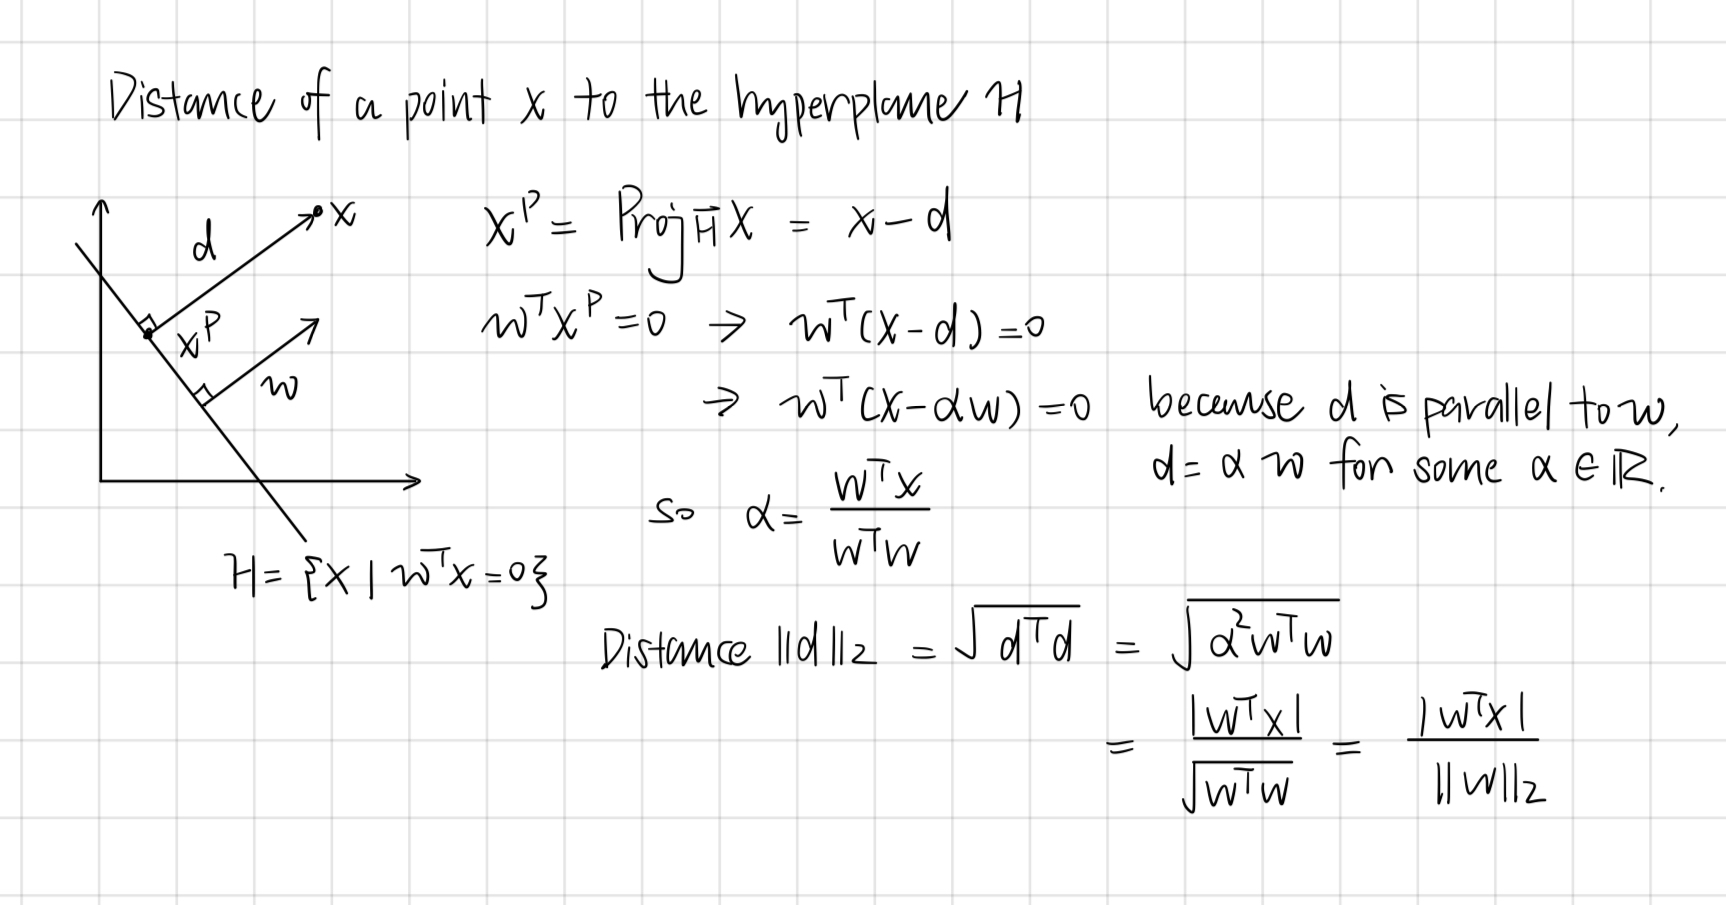 Distance of a point x to the hyperplane H
d
x
x^P
w
H = {x | w^T x = 0}
x^P = Proj_H x = x - d
w^T x^P = 0 → w^T (x - d) = 0
→ w^T (x - αw) = 0 because d is parallel to w,
d = α w for some α ∈ ℝ.
so α = w^T x / w^T w
Distance ||d||_2 = √(d^T d) = √(α^2 w^T w)
= |w^T x| / √(w^T w) = |w^T x| / ||w||_2